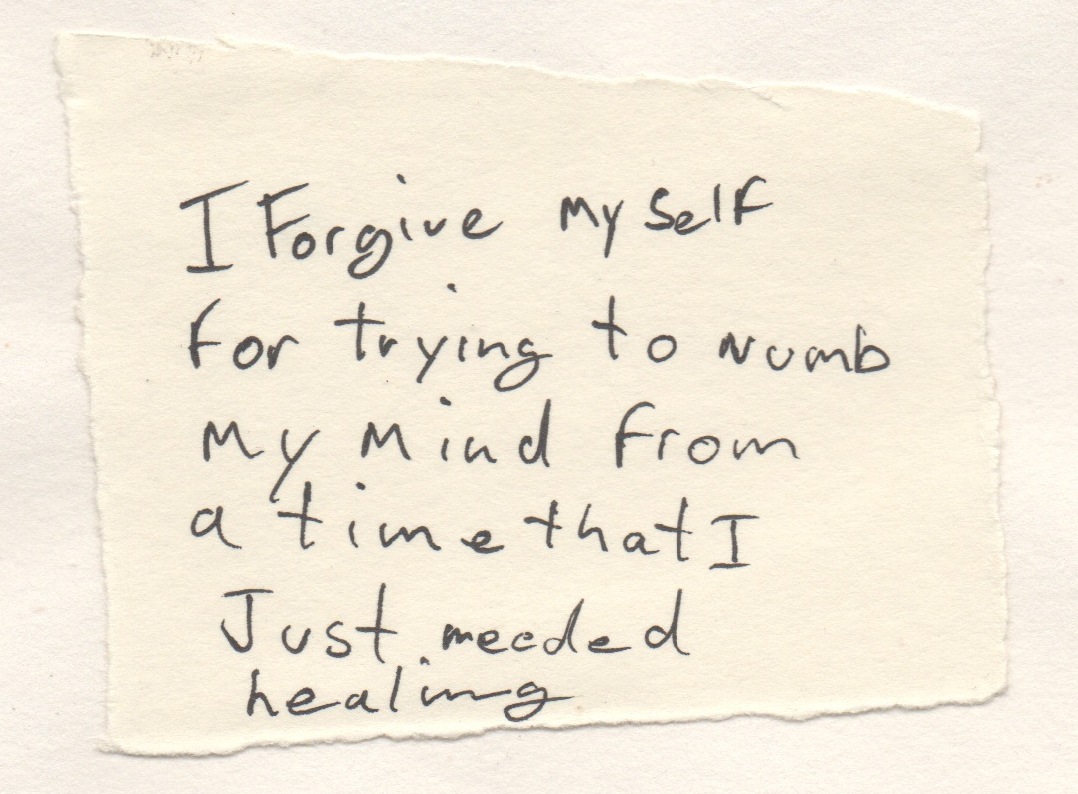 I Forgive Myself
for trying to Numb
My Mind from
a time that I
Just needed
healing